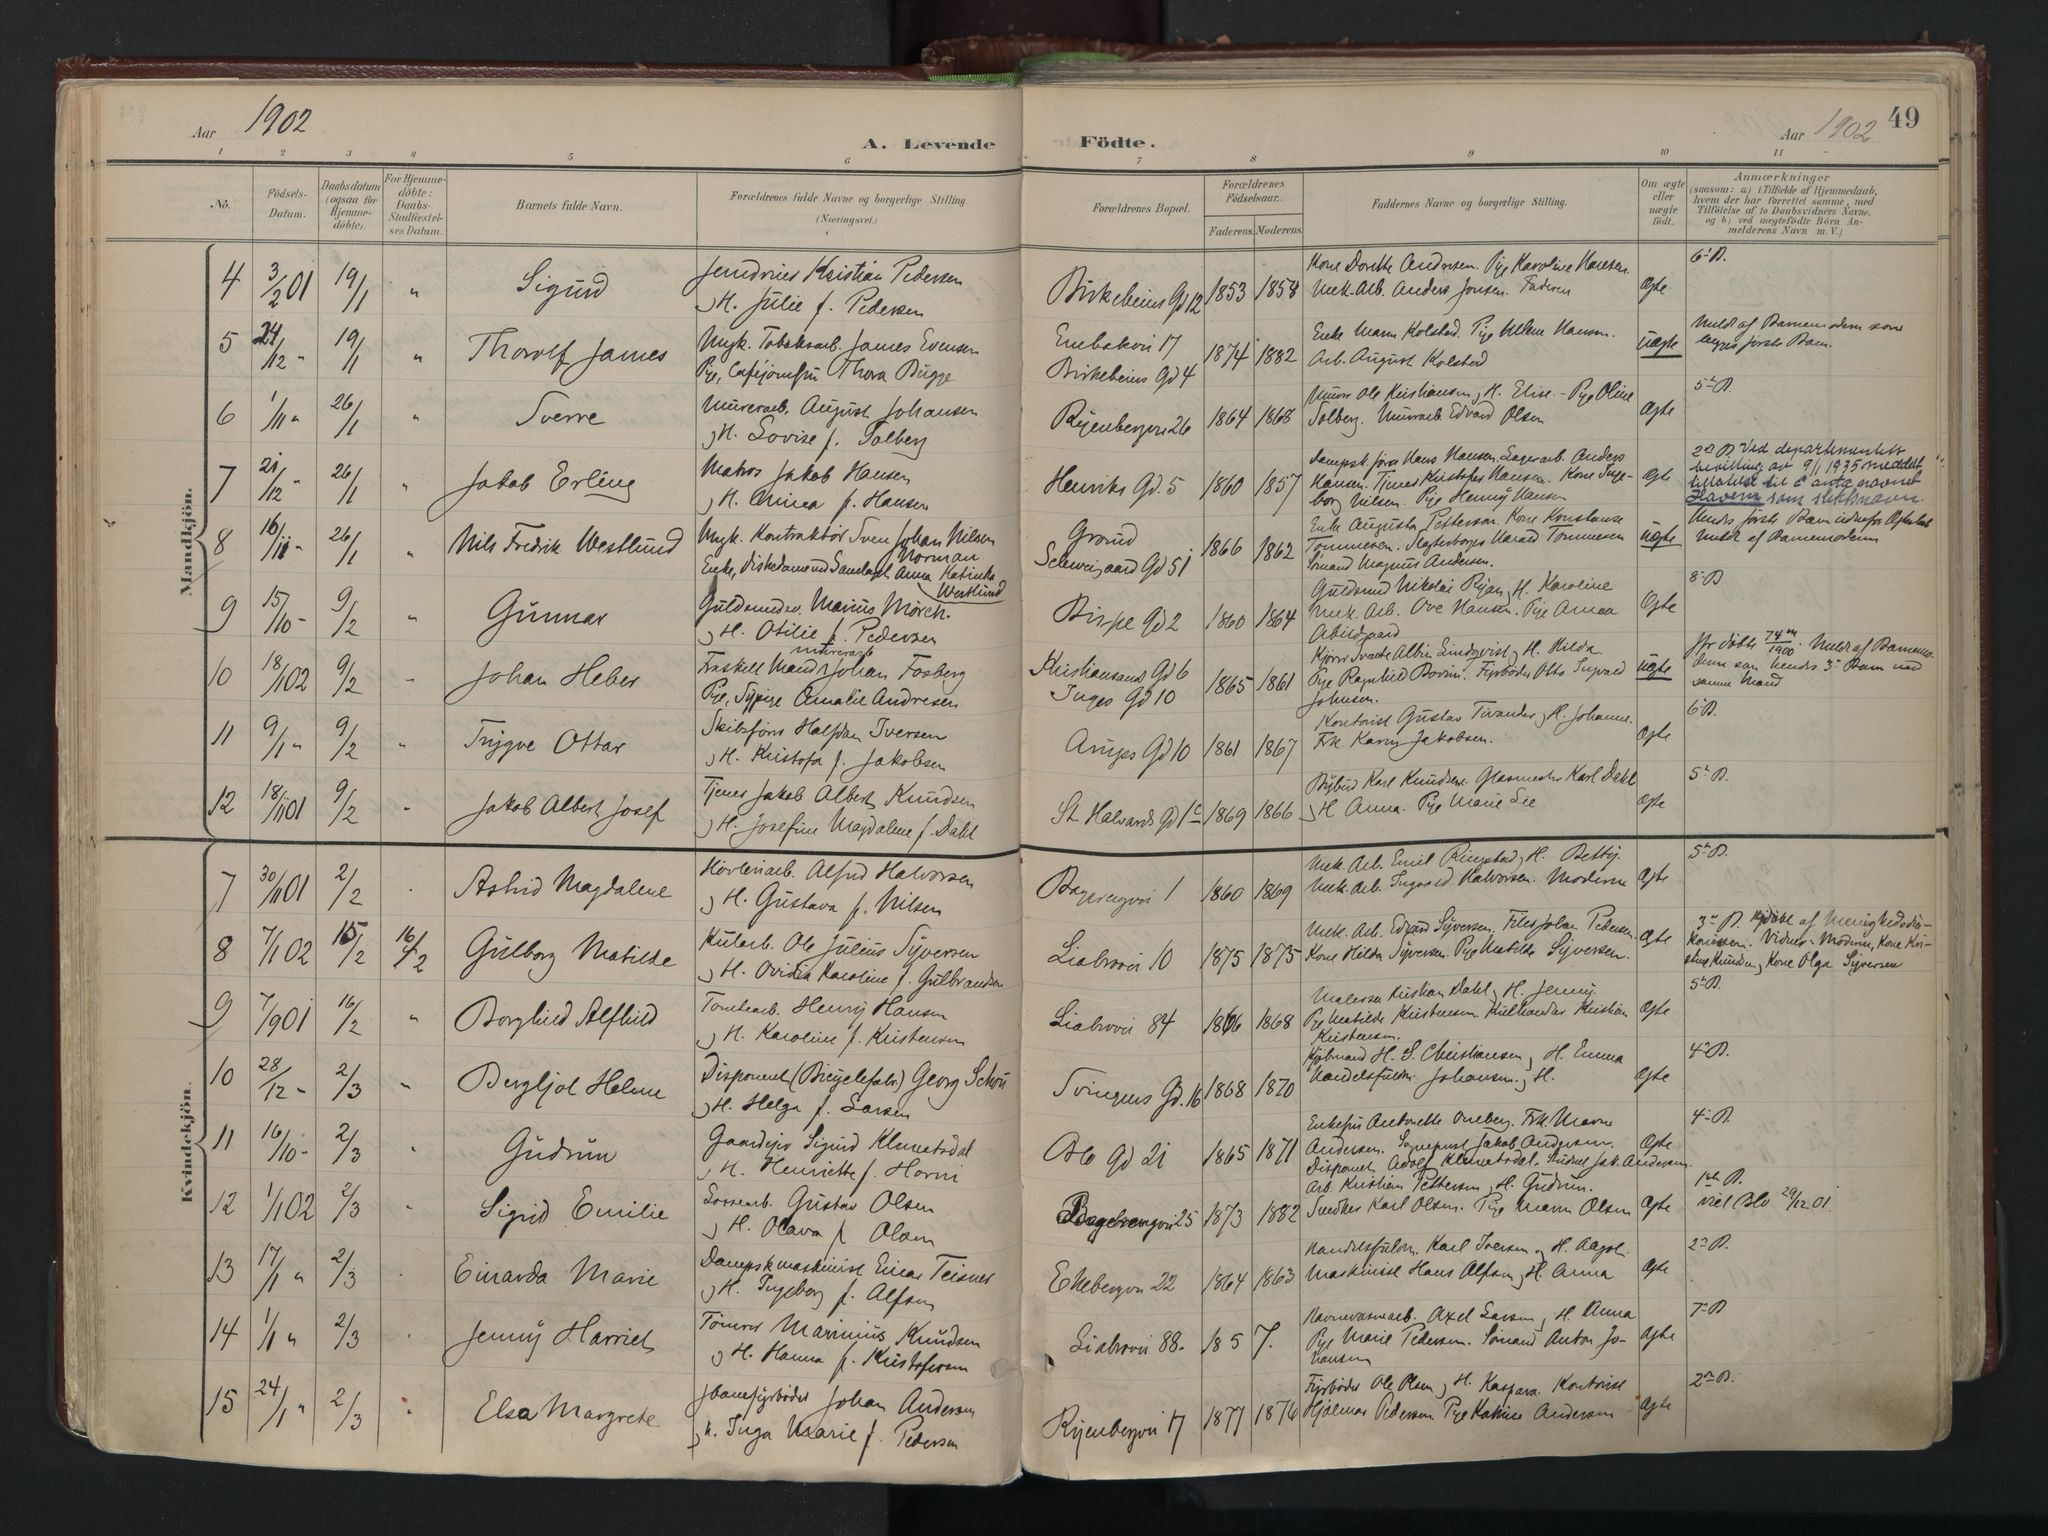 Aar 1902
A. Levende
Födte.
Aar 1902
49
1 2 3 4 5 6 7 8 9 10 11
No.
Födsels-Datum.
Daabsdatum (ogsaa for Hjemme-döbte).
For Hjemme-döbte: Daabs-Stadfæstel-ses Datum.
Barnets fulde Navn.
Forældrenes fulde Navne og borgerlige Stilling
(Næringsvei.)
Forældrenes Bopæl.
Forældrenes Födselsaar.
Faderens. Moderens.
Faddernes Navne og borgerlige Stilling.
Om ægte eller uægte födt.
Anmærkninger
(saasom: a.) i Tilfælde af Hjemmedaab,
hvem der har forrettet samme, med
Tilföielse af to Daabsvidners Navne,
og b) ved uægtefödte Börn An-
melderens Navn m. V.)
Mandkjön.
4 3/2 01 19/1 " Sigurd
Kristian Pedersen
H. Julie f. Pedersen
Birkebeins Gd 12 1853 1858
Kone Dorthe Andresen. Pige Karoline Hansen.
Mek. Arb. Anders Jonsen. Faderen
Ægte 6te B.
5 24/12 " 19/1 " Thorolf James
Ugk. Tobaksarb. James Evensen
Pige, Cafejomfru Thora Bugge
Enebakvei 17
Birkebeins Gd 4 1874 1882
Enke Maren Kolstad. Pige Helene Hansen.
Arb. August Kolstad
uægte
Meldt af Barnemoderen som
hendes første Barn.
6 1/11 " 26/1 " Sverre
Murerarb. August Johansen
H. Lovise f. Solberg
Ryenbergvei 26 1864 1868
Murer Ole Kristiansen, H. Elise. Pige Oline
Solberg. Murerarb Edvard Olsen
Ægte 5te B.
7 21/12 " 26/1 " Jakob Erling
Matros Jakob Hansen
H. Minea f. Hansen
Henriks Gd. 5 1860 1857
Dampsk. fører Hans Hansen. Lagerarb. Anders
Hansen. Tjener Kristofer Hansen. Kone Inge-
borg Nilsen. Pige Henny Hansen
Ægte
2det B. Ved departementets
bevilling av 9/1 1935 meddelt
tillatelse til å anta navnet
Havem som slektsnavn.
8 16/11 " 26/1 " Nils Fredrik Westlund
Ugk. Kontraktör Sven Johan Nilsen
Norman
Enke, Anna Katinka
Westlund
Grønd
Schweigaard Gd 51 1866 1862
Enke Augusta Petterson. Kone Konstanse
Tommesen. Harald Tommesen
Sömand Magnus Andersen.
uægte
Meldt af Barnemoderen
9 15/10 - 9/2 " Gunnar
Guldsmedsv. Marius Mörch.
H. Otilie f. Pedersen
Bispe Gd 2 1860 1864
Guldsmed Nikolai Ryan, H. Karoline
Mek. Arb. Ove Hansen. Pige Anna
Abildgaard
Ægte 8de B.
10 18/1 02 9/2 " Johan Heber
Murerarb
Fraskilt Mand Johan Fosberg
Pige, Sypige Amalie Andresen
Kristiansands Gd 6
Inges Gd 10 1865 1861
Albin Lindqvist, H. Hilda.
Pige Ragnhild Bovim. Fyrböder Otto Ingvald
Johnsen.
uægte
1900. Meldt af Barnemo-
deren som hendes 3die Barn med
samme Mand
11 9/1 " 9/2 " Trygve Ottar
Skibsförer Halfdan Iversen
H. Kristofa f. Jakobsen
Arups Gd 10 1861 1867
Kontorist Gustav Tivander, H. Johanne.
Frk. Karen Jakobsen.
Ægte 6te B.
12 18/11 01 9/2 " Jakob Albert Josef
Tjener Jakob Albert Knudsen
H. Josefine Magdalene f. Dahl
St Halvards Gd 1c 1869 1866
Bybud Karl Knudsen. Glasmester Karl Dahl
H Anna. Pige Marie Lie
Ægte 5te B.
Kvindekjön.
7 30/11 01 2/2 " Astrid Magdalene
Hövleriarb. Alfred Halvorsen
H. Gustava f. Nilsen
1 1860 1869
Mek. Arb. Emil Ringstad, H. Betty.
Mek. Arb. Ingvald Halvorsen. Moderen
Ægte 5te B.
8 7/1 02 15/2 16/2 Gulborg Matilde
Kularb. Ole Julius Syversen
H. Ovidia Karoline f. Gulbrandsen
Liabrovei 10 1875 1875
Mek. Arb. Edvard Syversen. Johan Pedersen
Kone Hilda Syversen. Pige Matilde Syversen.
Ægte
3die B. Hjdöbt af Menighedsdia-
konissen. Vidner: Moderen, Kone Kri-
stine Knudsen, Kone Olga Syversen
9 7/9 01 16/2 " Borghild Alfhild
Tomtearb. Henry Hansen
H. Karoline f. Kristensen
Liabrovei 84 1866 1868
Malersv Kristian Dahl, H. Jenny.
Pige Matilde Kristensen. Kulhandler Kristian
Kristensen.
Ægte 5te B.
10 28/12 - 2/3 " Bergljot Helene
Disponent (Bicyclefabr) Georg Schou
H. Helga f. Larsen
Tvingens Gd. 16 1868 1870
Kjöbmand H. S. Christiansen, H. Emma
Handelsfuldm. Johansen, H.
Ægte 4de B.
11 16/10 - 2/3 " Gudrun
Gaardejer Sigurd Klemetsdal
H. Henriette f. Horni
Oslo Gd 21 1865 1871
Enkefru Antonette Oneberg. Frk. Maren
Andersen. Sognepræst Jakob Andersen.
Disponent Adolf Klemetsdal. Jak. Andersen.
Ægte 4de B.
12 1/1 02 2/3 " Sigrid Emilie
Lossearb. Gustav Olsen
H. Olava f. Olsen
25 1873 1882
Arb. Kristian Pettersen, H. Gudrun.
Snedker Karl Olsen. Pige Maren Olsen
Ægte
1ste B.
viet Oslo 29/12 01.
13 17/1 " 2/3 " Einarda Marie
Dampsk maskinist Einar Teisner
H. Ingeborg f. Alfsen
Ekebergvei 22 1864 1863
Handelsfuldm. Karl Iversen og H. Aagot.
Maskinist Hans Alfsen, H. Anna
Ægte 2det B.
14 1/1 " 2/3 " Jenny Harriet
Tömrer Marinius Knudsen
H. Hanna f. Kristofersen
Liabrovei 88. 185 7.
Axel Larsen, H. Anna
Pige Marie Pedersen. Sömand Anton Jo-
hansen
Ægte 7de B.
15 24/1 " 2/3 " Elsa Margrete
Jbanefyrböder Johan Andersen
H. Inga Marie f. Pedersen
Ryenbergvei 17 1877 1876
Fyrböder Ole Olsen, H. Kaspara. Kontorist
Hjalmar Pedersen Pige Kathrine Andersen
Ægte 2det B.